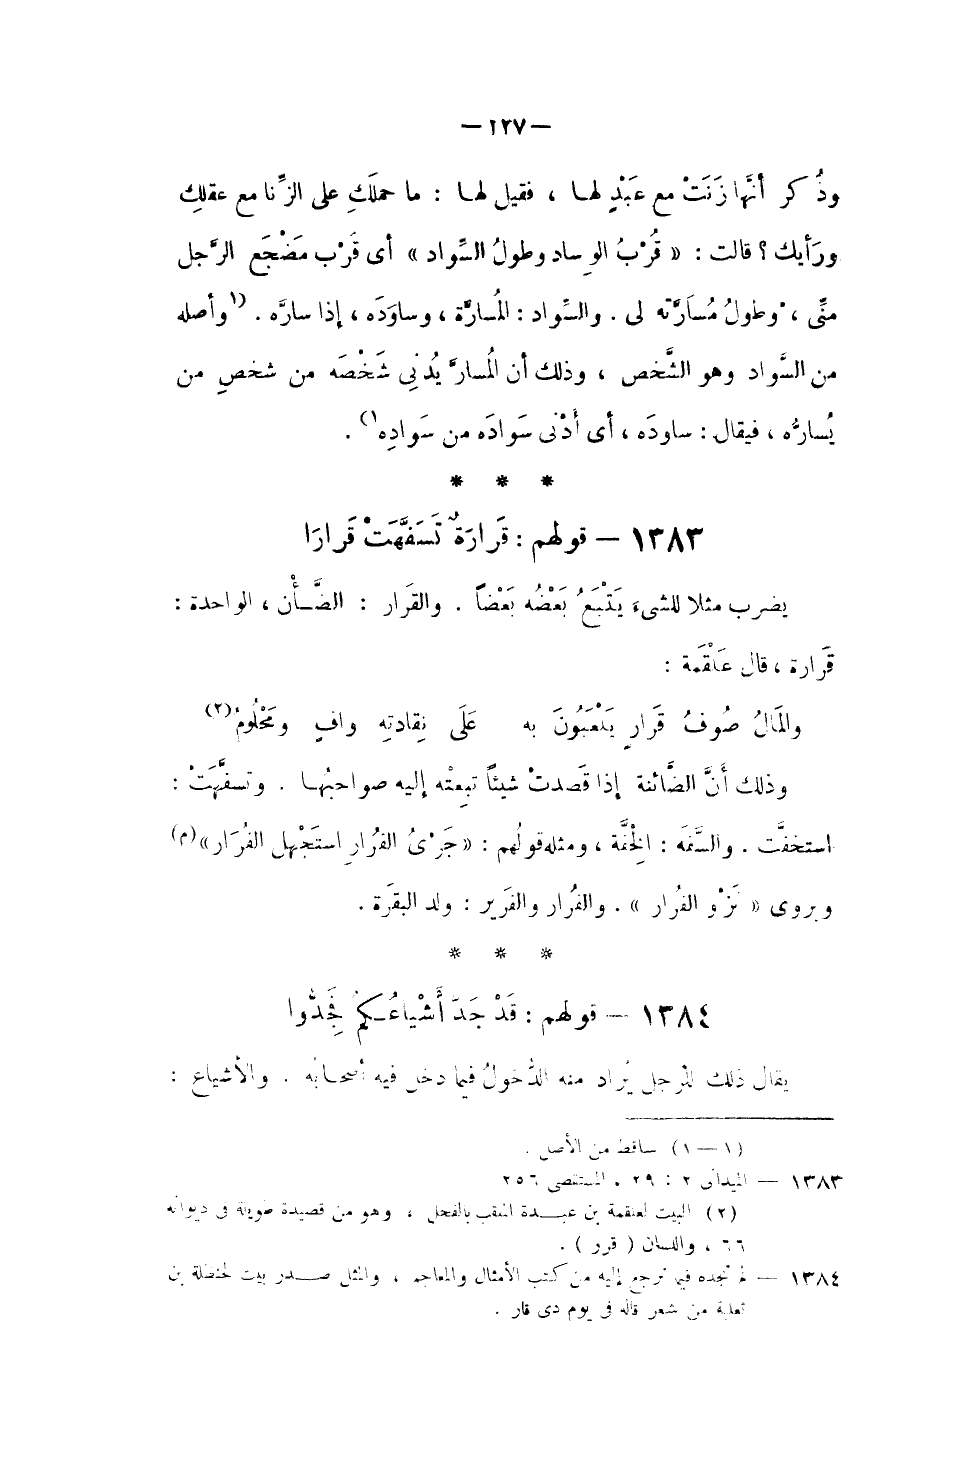 — ١٢٧ —
وذُكر أنَّها زَنَتْ مع عَبْدٍ لها ، فقيل لها : ما حملَكِ على الزِّنا مع عقلكِ
ورَأيك ؟ قالت : « قُرْبُ الوِساد وطولُ السِّواد » أى قَرْب مَضْجَع الرَّجل
منِّى ، وطولُ مُسارَّته لى . والسِّواد : المُسارَّة ، وساوَدَه ، إذا سارَّه . (١وأصله
من السَّواد وهو الشَّخص ، وذلك أن المُسارَّ يُدْنِى شَخْصَه من شخصِ من
يُسارُّه ، فيقال : ساودَه ، أى أدْنى سَوادَه من سَوادِه١) .
* * *
١٣٨٣ — قولهم : قَرارَةٌ تَسَفَّهَتْ قَرارَا
يضرب مثلا للشىء يَتْبَعُ بَعْضُه بَعْضاً . والقَرار : الضَّأْن ، الواحدة :
قَرارة ، قال عَلْقَمة :
والمَالُ صُوفُ قَرارٍ يَلْعَبُونَ به عَلَى نِقادتِه وافٍ ومَجْلُومُ(٢)
وذلك أنَّ الضَّائنة إذا قَصدتْ شيئاً تبِعتْه إليه صواحبُها . وتسفَّهَتْ :
استخفَّت . والسَّفه : الخِفَّة ، ومثله قولُهم : « جَرْىُ الفُرارِ استَجْهل الفُرَار »(م)
ويروى « نَزْو الفُرار » . والفُرار والفَرير : ولد البقَرة .
* * *
١٣٨٤ — قولهم : قَدْ جَدَّ أَشْياعُكُمْ فَجِدُّوا
يقال ذلك للرَّجل يُراد منه الدُّخولُ فيما دخل فيه أصحابُه . والأشياع :
(١ — ١) ساقط من الأصل .
١٣٨٣ — الميدانى ٢ : ٢٩ . المستقصى ٢٥٦
(٢) البيت لعلقمة بن عبدة الملقب بالفحل ، وهو من قصيدة طويلة فى ديوانه
٦٦ ، واللسان ( قرر ) .
١٣٨٤ — لم نجده فيما نرجع إليه من كتب الأمثال والمعاجم ، والمثل صدر بيت لحنظلة بن
ثعلبة من شعر قاله فى يوم ذى قار .